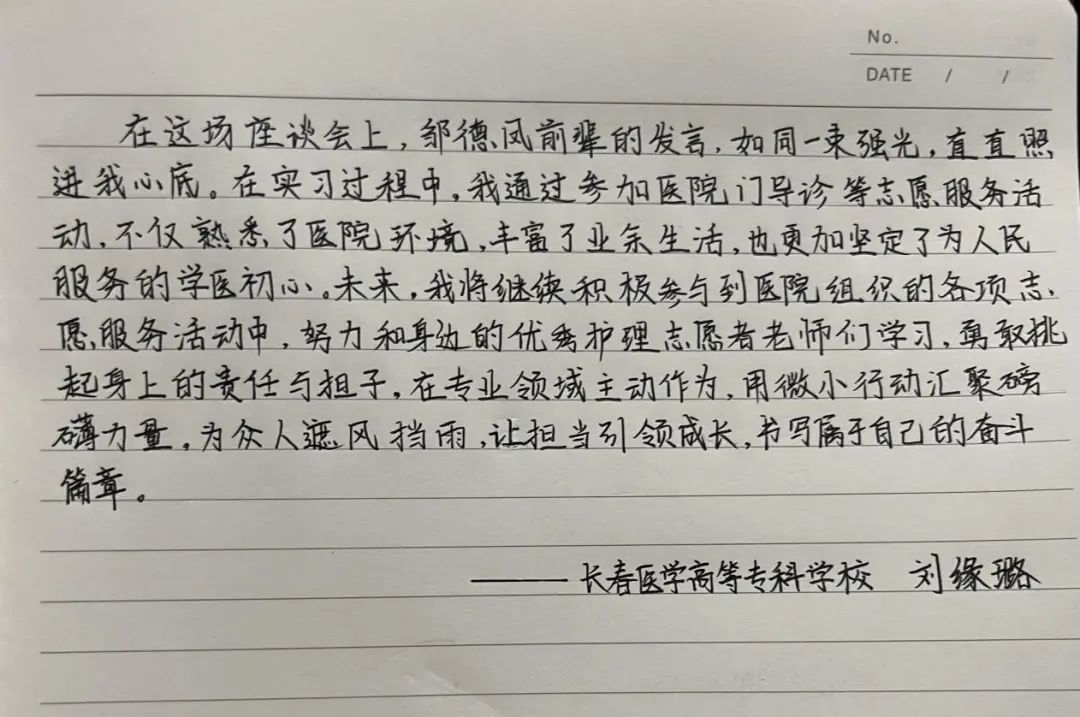 No.
DATE / /
在这场座谈会上，邹德凤前辈的发言，如同一束强光，直直照
进我心底。在实习过程中，我通过参加医院门导诊等志愿服务活
动，不仅熟悉了医院环境，丰富了业余生活，也更加坚定了为人民
服务的学医初心。未来，我将继续积极参与到医院组织的各项志
愿服务活动中，努力和身边的优秀护理志愿者老师们学习，勇敢挑
起身上的责任与担子，在专业领域主动作为，用微小行动汇聚磅
礴力量，为众人遮风挡雨，让担当引领成长，书写属于自己的奋斗
篇章。
——长春医学高等专科学校 刘缘璐